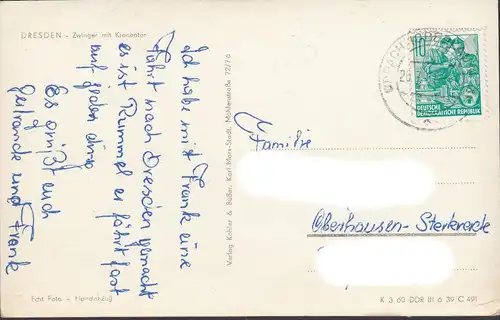 DRESDEN – Zwinger mit Kronentor
Ich habe mit Frank eine
Fahrt nach Dresden gemacht
es ist Rummel er fährt fast
auf jeden
Es grüßt euch
Gertraude und Frank
Verlag Köhler & Büßer, Karl-Marx-Stadt, Mühlenstraße 72/76
10
DEUTSCHE
DEMOKRATISCHE REPUBLIK
5
Familie
Oberhausen-Sterkrade
Echt Foto – Handabzug
K 3 60 DDR III 6 39 C 491